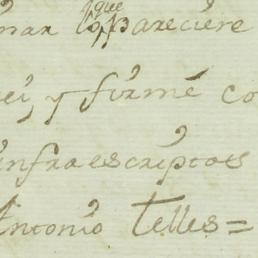 que
mar lo pareciere
lei, y firmé co
infraescriptos
Antonio Telles =